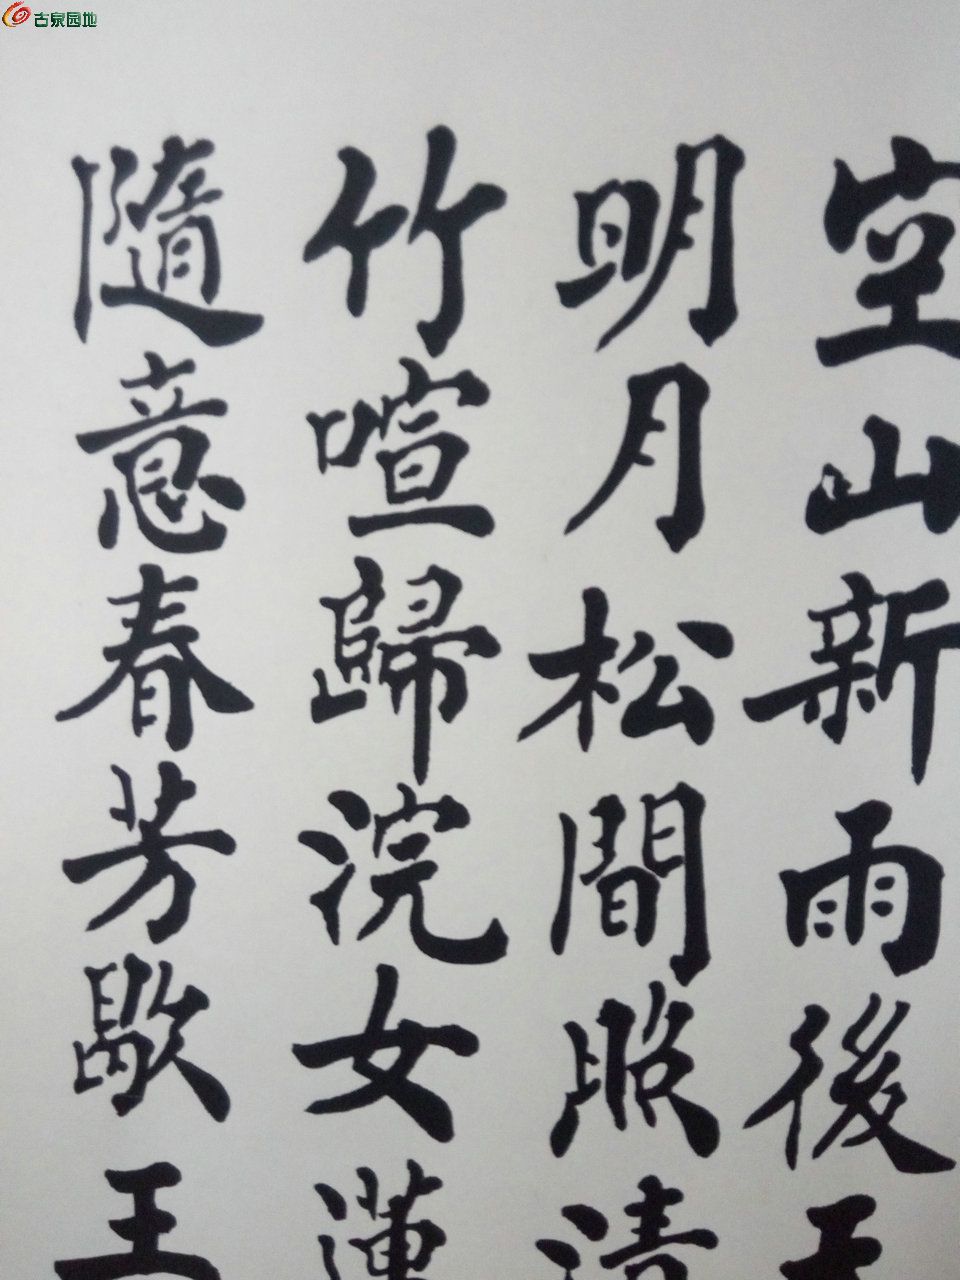 古泉园地
空山新雨後天
明月松間照清
竹喧歸浣女蓮
隨意春芳歇王